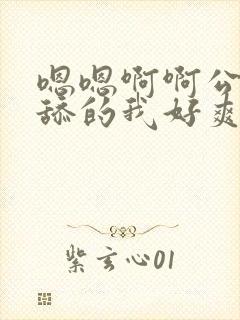 嗯嗯啊啊公
舔的我好爽
紫玄心01